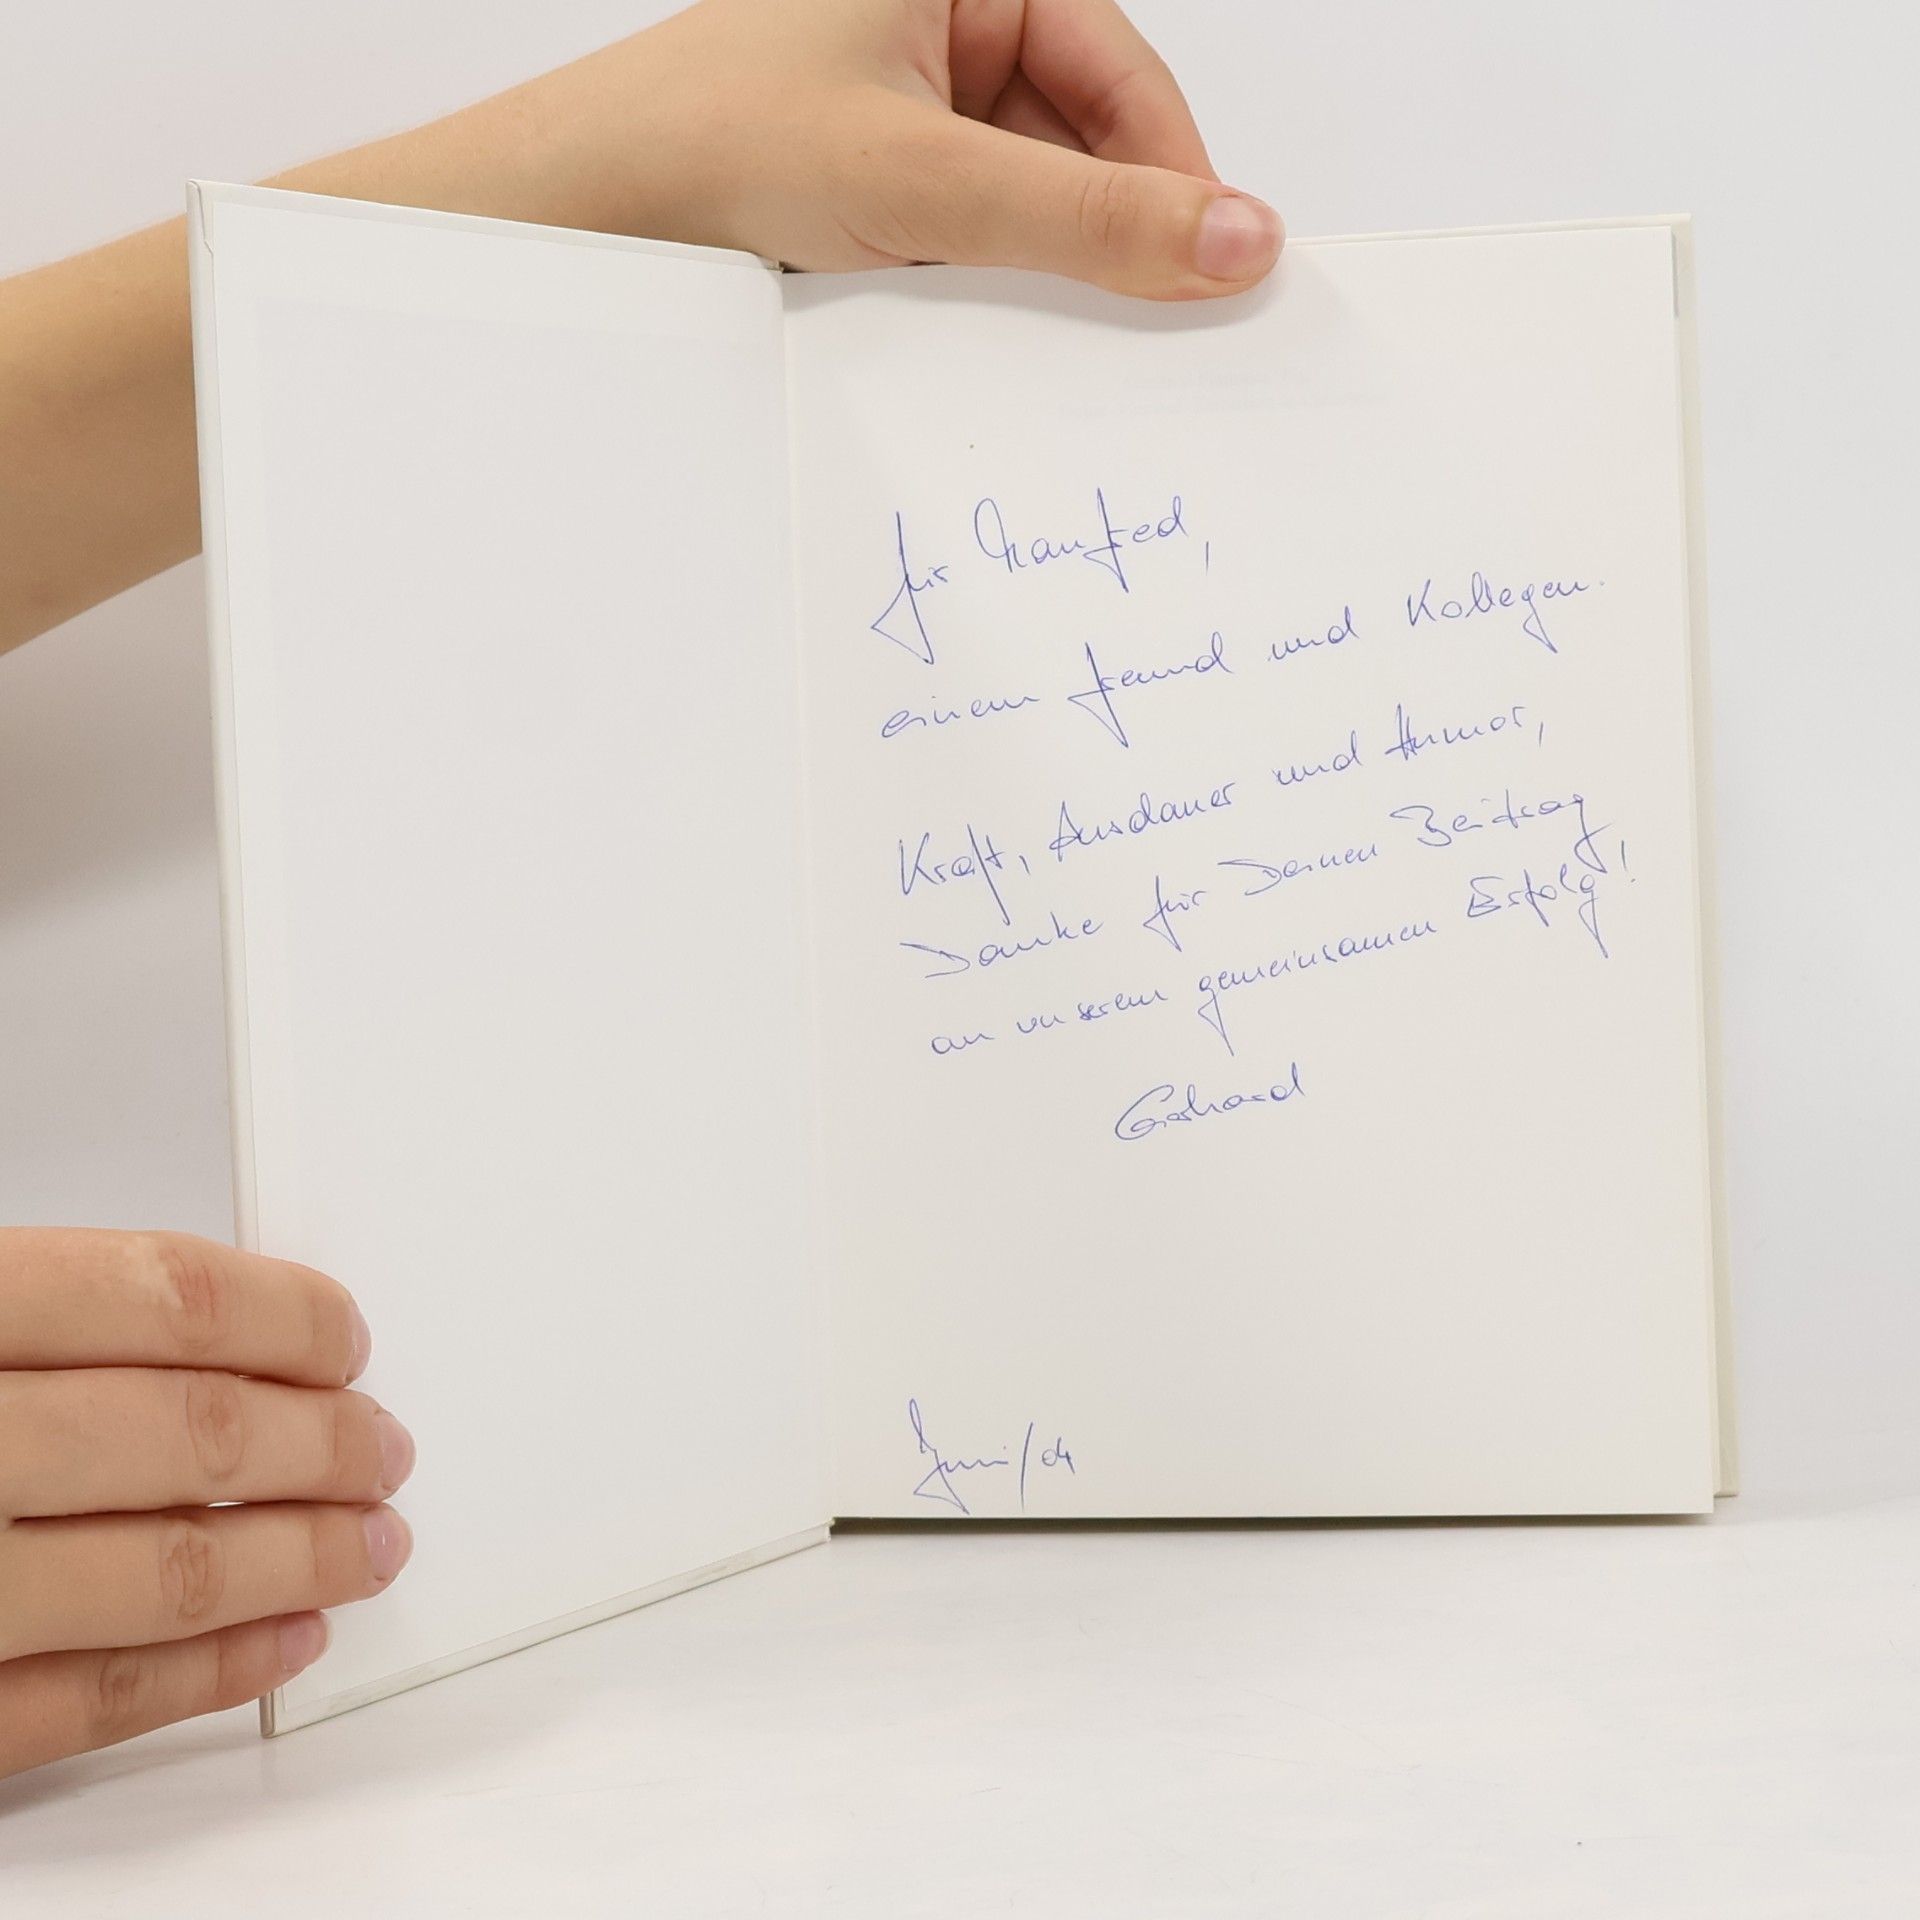 für Manfred,
einem Freund und Kollegen.
Kraft, Ausdauer und Humor,
Danke für Deinen Beitrag
an unserem gemeinsamen Erfolg!
Gerhard
Juni/04